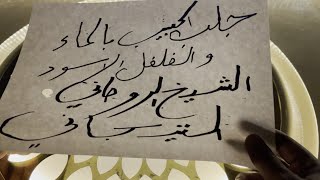 جلب الحبيب بالماء
والفلفل الاسود
الشيخ الروحاني
التيجاني